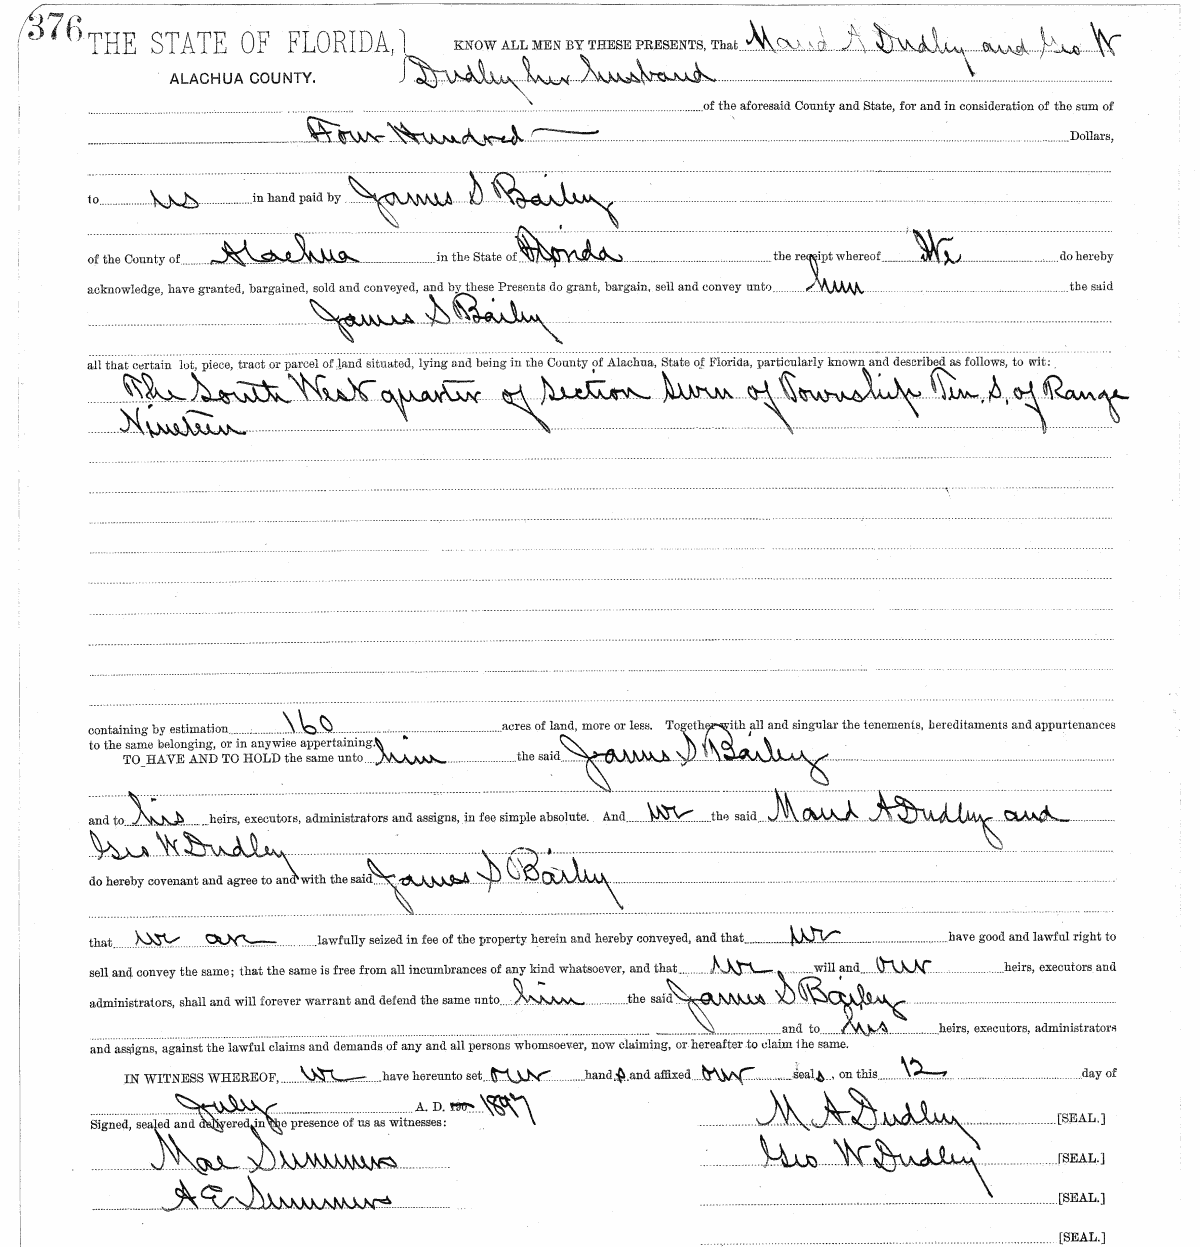 376
THE STATE OF FLORIDA,
ALACHUA COUNTY.
KNOW ALL MEN BY THESE PRESENTS, That Maud A Dudley and Geo W
Dudley her husband
of the aforesaid County and State, for and in consideration of the sum of
Four Hundred Dollars,
to us in hand paid by James S Bailey
of the County of Alachua in the State of Florida the receipt whereof We do hereby
acknowledge, have granted, bargained, sold and conveyed, and by these Presents do grant, bargain, sell and convey unto him the said
James S Bailey
all that certain lot, piece, tract or parcel of land situated, lying and being in the County of Alachua, State of Florida, particularly known and described as follows, to wit:
The South West quarter of Section Seven of Township Ten, S, of Range
Nineteen
containing by estimation 160 acres of land, more or less. Together with all and singular the tenements, hereditaments and appurtenances
to the same belonging, or in anywise appertaining.
TO HAVE AND TO HOLD the same unto him the said James S Bailey
and to his heirs, executors, administrators and assigns, in fee simple absolute. And we the said Maud A Dudley and
Geo W Dudley
do hereby covenant and agree to and with the said James S Bailey
that we are lawfully seized in fee of the property herein and hereby conveyed, and that we have good and lawful right to
sell and convey the same; that the same is free from all incumbrances of any kind whatsoever, and that we will and our heirs, executors and
administrators, shall and will forever warrant and defend the same unto him the said James S Bailey
and to his heirs, executors, administrators
and assigns, against the lawful claims and demands of any and all persons whomsoever, now claiming, or hereafter to claim the same.
IN WITNESS WHEREOF, we have hereunto set our hands and affixed our seals, on this 12 day of
July A. D. 190 1897
Signed, sealed and delivered in the presence of us as witnesses:
M A Dudley [SEAL.]
Mae Summers
Geo W Dudley [SEAL.]
A E Summers
[SEAL.]
[SEAL.]